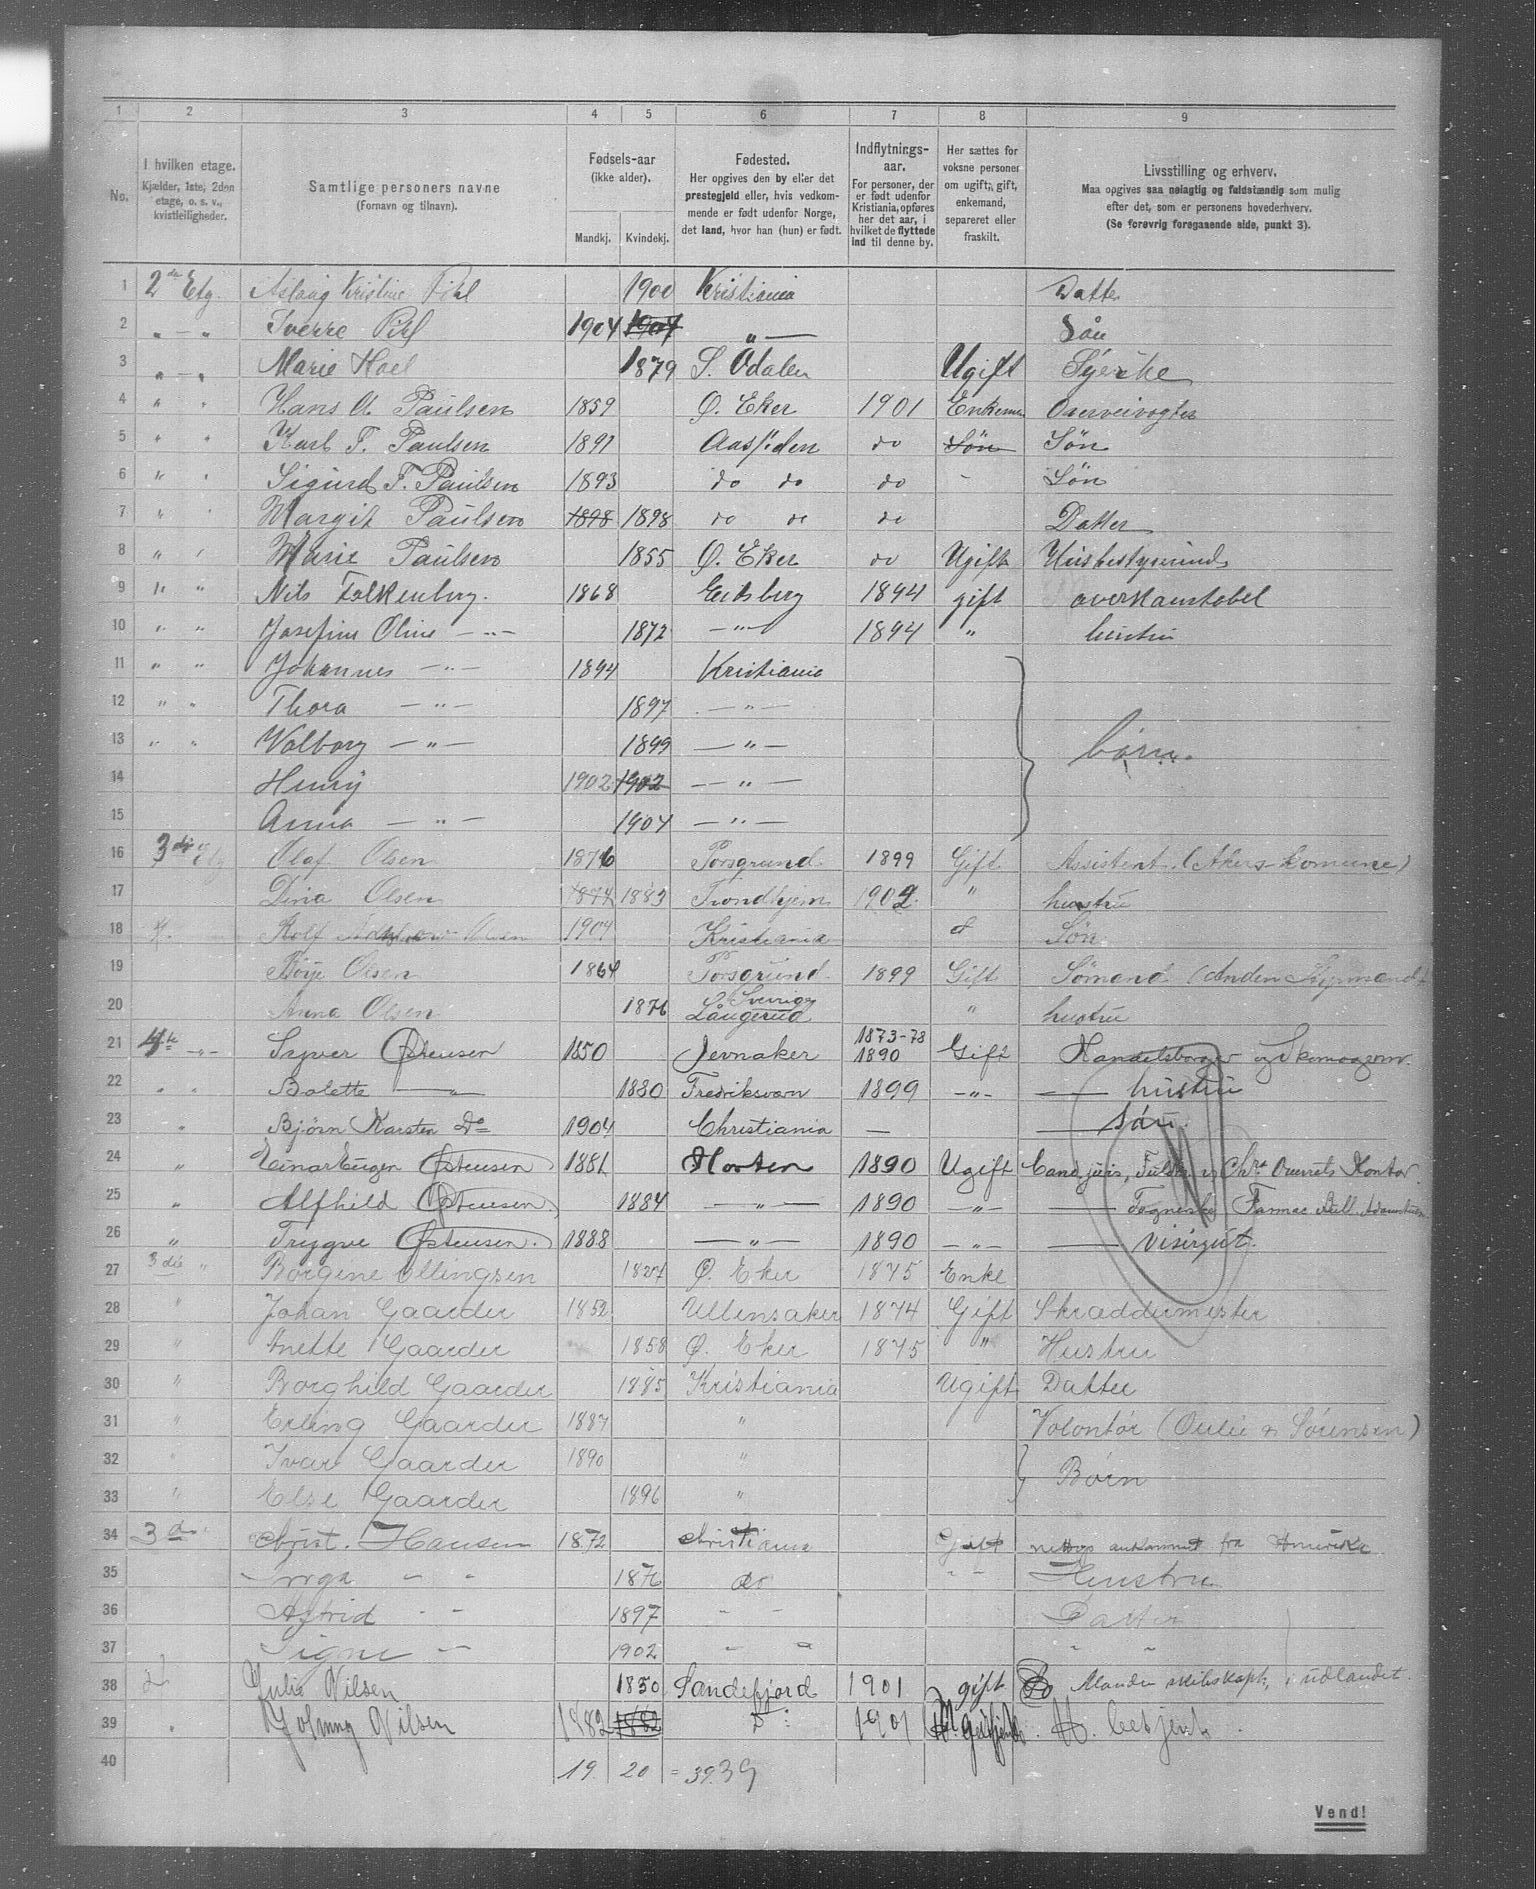 1 2 3 4 5 6 7 8 9
No.
I hvilken etage.
Kjælder, 1ste, 2den
etage, o. s. v.,
kvistleiligheder.
Samtlige personers navne
(Fornavn og tilnavn).
Fødsels-aar
(ikke alder).
Mandkj. Kvindekj.
Fødested.
Her opgives den by eller det
prestegjeld eller, hvis vedkom-
mende er født udenfor Norge,
det land, hvor han (hun) er født.
Indflytnings-
aar.
For personer, der
er født udenfor
Kristiania, opføres
her det aar, i
hvilket de flyttede
ind til denne by.
Her sættes for
voksne personer
om ugift, gift,
enkemand,
separeret eller
fraskilt.
Livsstilling og erhverv.
Maa opgives saa nøiagtig og fuldstændig som mulig
efter det, som er personens hovederhverv.
(Se forøvrig foregaaende side, punkt 3).
1 2de Etg. Aslaug Kristine Pihl 1900 Kristiania Datter
2 " — " Sverre Pihl 1904 1904 " — Søn
3 " — " Marie Hoel 1879 S. Odalen Ugift
4 " " Hans A Paulsen 1859 Ø. Eker 1901 Enkem
5 " " Karl F. Paulsen 1891 do Søn Søn
6 " " Sigurd F. Paulsen 1893 do do do - Søn
7 " " Margit Paulsen 1898 1898 do do do Datter
8 " " Marie Paulsen 1855 Ø. Eker do Ugift Husbestyrerinde
9 " " Nils Falkenberg. 1868 Eidsberg 1894 gift overkonstabel
10 " " Josefine Oline — " — 1872 — " — 1894 " hustru
11 " " Johannes — " — 1894 Kristiania
12 " " Thora — " — 1897 — " —
13 " " Valborg — " — 1899 — " — børn.
14 Henry 1902 1902 — " —
15 Anna — " — 1904 — " —
16 3die Etg Olaf Olsen 1876 Porsgrund. 1899 Gift Assistent (Akers komune)
17 Dina Olsen 1874 1883 Trondhjem 1902. " hustru
18 Rolf Olsen 1904 Kristiania Søn
19 Børje Olsen 1864 Porsgrund. 1899 Gift Sømand (Anden Styrmand)
20 Anna Olsen 1876 Sverige Långerud " hustru
21 4de — " — Syver Østensen 1850 Jevnaker 1873-78 1890 Gift Handelsborger og Skomagerm.
22 " " Bolette — " — 1880 Fredriksværn 1899 — " — — hustru
23 " Bjørn Karsten Do 1904 Christiania — — søn.
24 " Einar Eugen Østensen 1881 Horten 1890 Ugift Cand juris, Kontor.
25 " Alfhild Østensen 1884 — " — 1890 — " —
26 " Trygve Østensen. 1888 — " — 1890 — " — — Visergut.
27 3die " Borgine Ellingsen 1827 Ø. Eker 1875 Enke
28 " Johan Gaarder 1852 Ullensaker 1874 Gift Skræddermester
29 " Anette Gaarder 1858 Ø. Eker 1875 " Hustru
30 " Borghild Gaarder 1885 Kristiania Ugift Datter
31 " Erling Gaarder 1887 " Volontør (Oulie & Sørensen)
32 " Ivar Gaarder 1890 " Børn
33 " Else Gaarder 1896 "
34 3d. Christ. Hansen 1872 Christiania Gift netop ankommet fra Amerika
35 Inga " " 1876 do " " Hustru
36 Astrid " " 1897 " " Datter
37 Signe " 1902 " " " "
38 Julie Nilsen 1850 Sandefjord 1901 gift i udlandet.
39 " Nilsen 1882 1882 Do 1901
40 19. 20 = 39. 39
Vend!